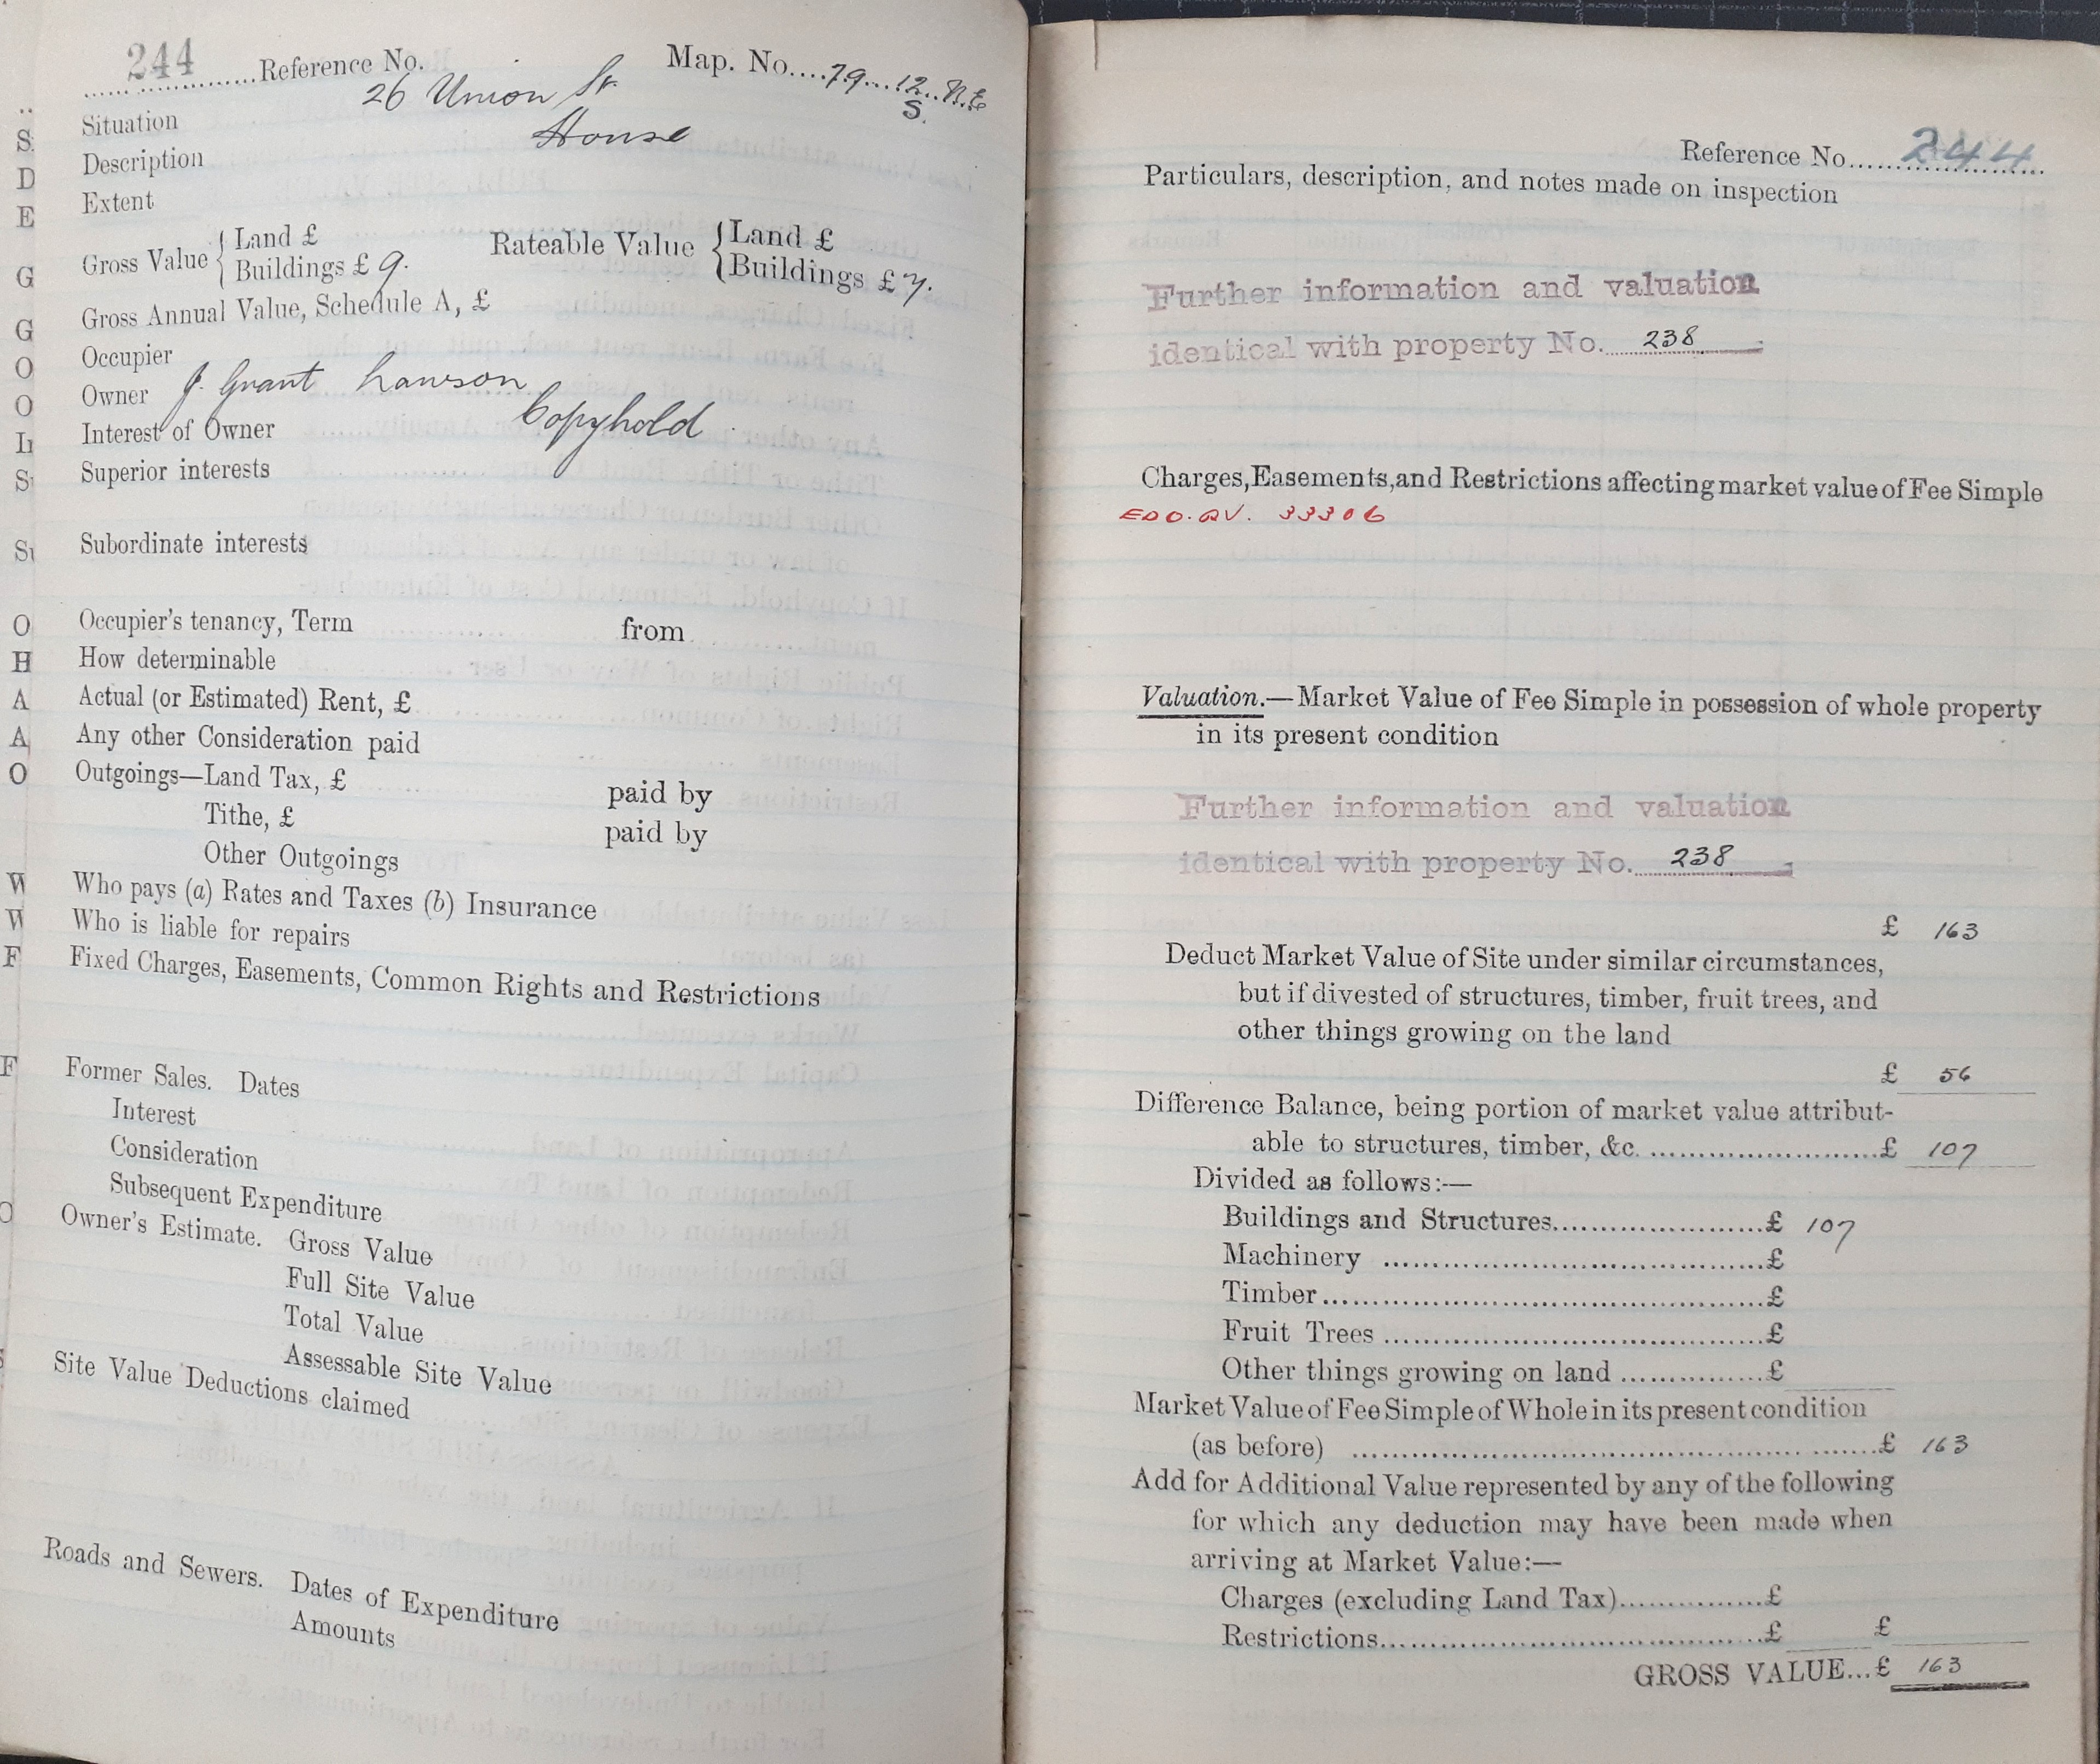 244 Reference No. Map. No. 79 12 N.E
S.
Situation 26 Union St.
Description House
Extent
Gross Value { Land £
Buildings £ 9. Rateable Value { Land £
Buildings £ 7.
Gross Annual Value, Schedule A, £
Occupier
Owner J. Grant Lawson
Interest of Owner Copyhold
Superior interests
Subordinate interests
Occupier's tenancy, Term from
How determinable
Actual (or Estimated) Rent, £
Any other Consideration paid
Outgoings—Land Tax, £ paid by
Tithe, £ paid by
Other Outgoings
Who pays (a) Rates and Taxes (b) Insurance
Who is liable for repairs
Fixed Charges, Easements, Common Rights and Restrictions
Former Sales. Dates
Interest
Consideration
Subsequent Expenditure
Owner's Estimate. Gross Value
Full Site Value
Total Value
Assessable Site Value
Site Value Deductions claimed
Roads and Sewers. Dates of Expenditure
Amounts
Reference No. 244
Particulars, description, and notes made on inspection
Further information and valuation
identical with property No. 238
Charges, Easements, and Restrictions affecting market value of Fee Simple
33306
Valuation.—Market Value of Fee Simple in possession of whole property
in its present condition
Further information and valuation
identical with property No. 238
£ 163
Deduct Market Value of Site under similar circumstances,
but if divested of structures, timber, fruit trees, and
other things growing on the land
£ 56
Difference Balance, being portion of market value attribut-
able to structures, timber, &c. £ 107
Divided as follows:—
Buildings and Structures £ 107
Machinery £
Timber £
Fruit Trees £
Other things growing on land £
Market Value of Fee Simple of Whole in its present condition
(as before) £ 163
Add for Additional Value represented by any of the following
for which any deduction may have been made when
arriving at Market Value:—
Charges (excluding Land Tax) £
Restrictions £ £
GROSS VALUE... £ 163